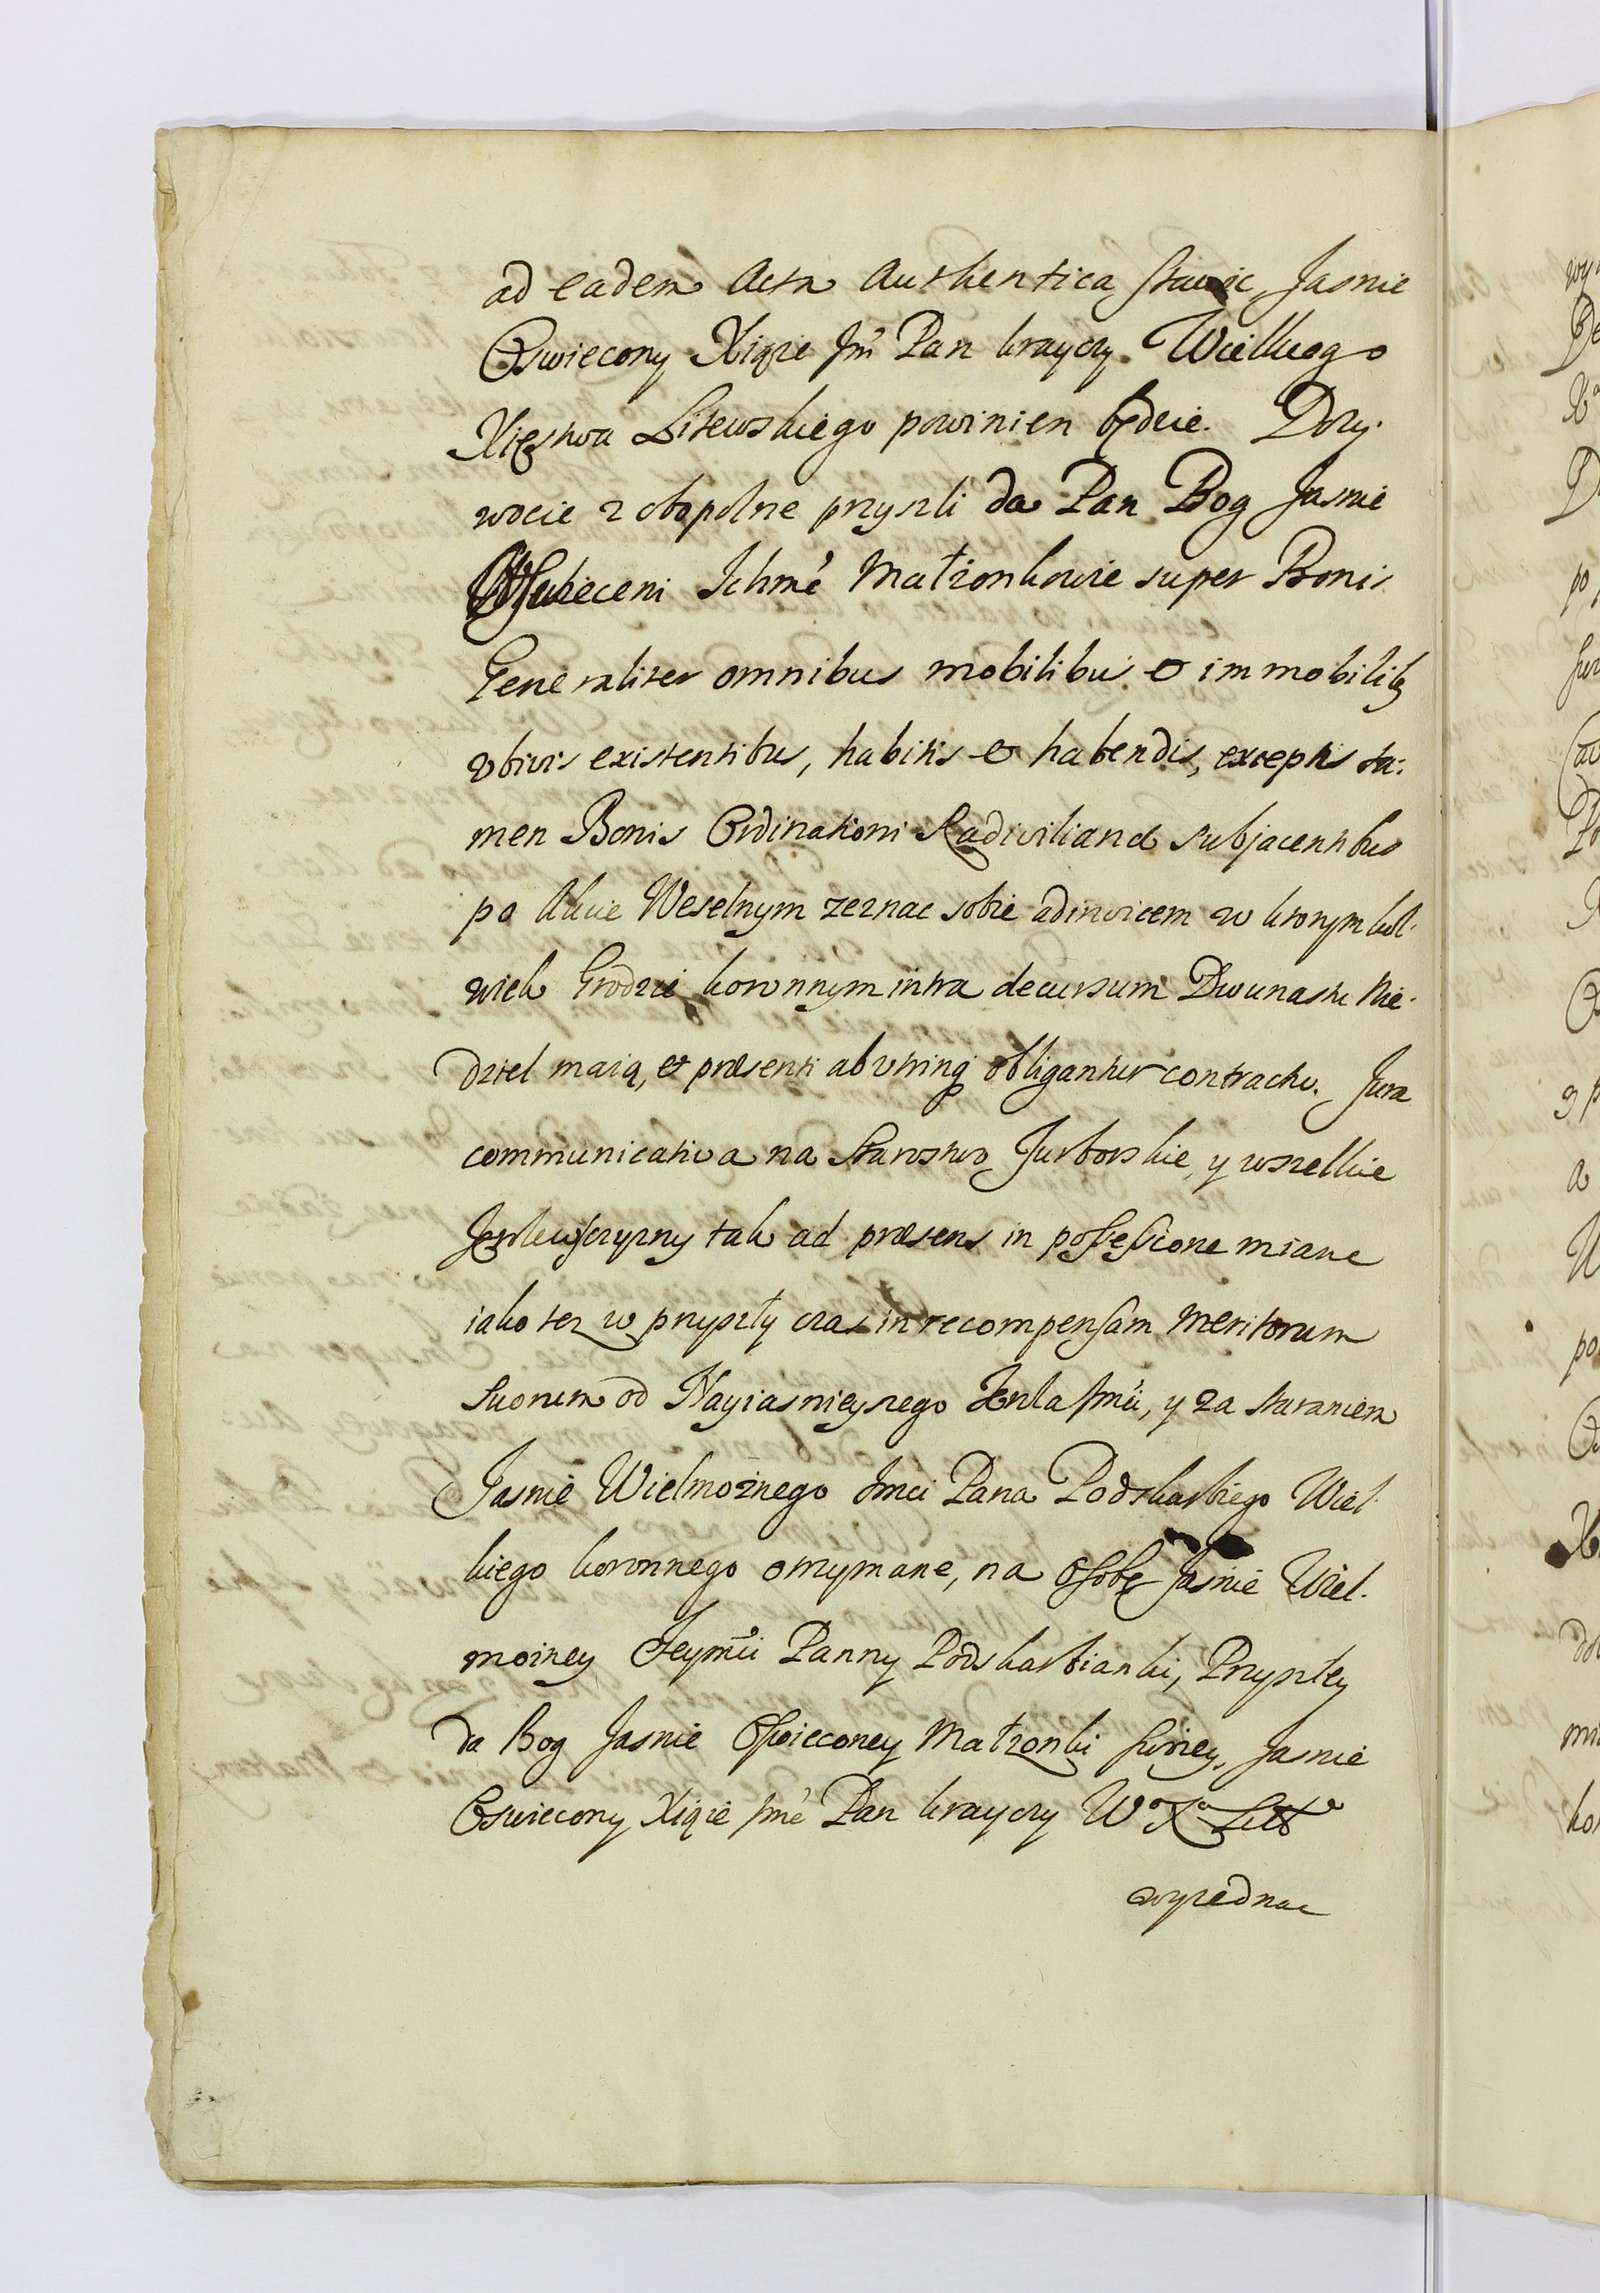 ad eadem Acta Authentica stawic, Jasnie
Oswiecony Xiąze Jmć Pan krayczy Wielkiego
Xięstwa Litewskiego powinien będzie. Dozy-
wocie z obopolne przyszli da Pan Bog Jasnie
Oswieceni Ichmć Małżonkowie super Bonis
Generaliter omnibus mobilibus et immobilibq
vbivis existentibus, habitis et habendis, exceptis ta-
men Bonis Ordinationi Radiviliana subjacentibus
po Akcie Weselnym zeznac sobie adinvicem w ktorym kol-
wiek Grodzie koronnym intra decursum Dwunastu Nie-
dziel maią, et præsenti ab vtrinq obligantur contractu. Jura
communicativa na Starostwo Jurborskie, y wszelkie
Krolewszczyzny tak ad præsens in possessione miane
iako tez w przyszły czas in recompensam meritorum
suorum od Nayiasnieyszego Krola Jmći, y za staraniem
Jasnie Wielmożnego Jmci Pana Podskarbiego Wiel-
kiego koronnego otrzymane, na Osobę Jasnie Wiel-
mozney Jeymći Panny Podskarbianki, Przyszłey
da Bog Jasnie Oswieconey Małżonki swoiey, Jasnie
Oswiecony Xiąze Jmć Pan krayczy Wo Xa Litto
wyiednac